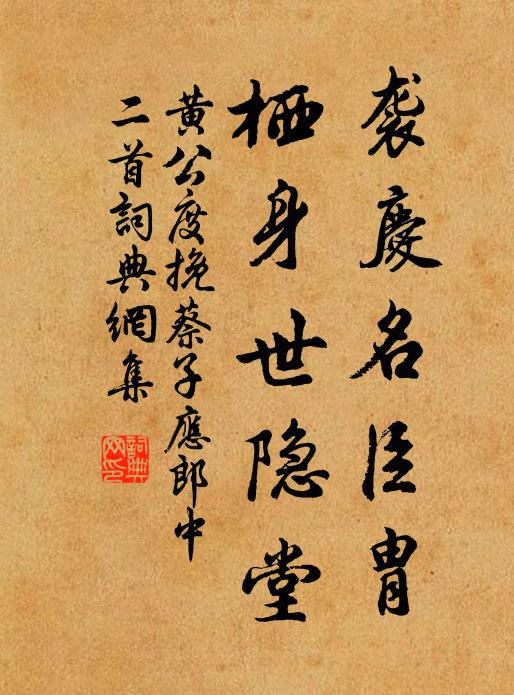 袭慶名臣胄
栖身世隐堂
黄公度挽蔡子應郎中
二首詞典網集
詞典网印